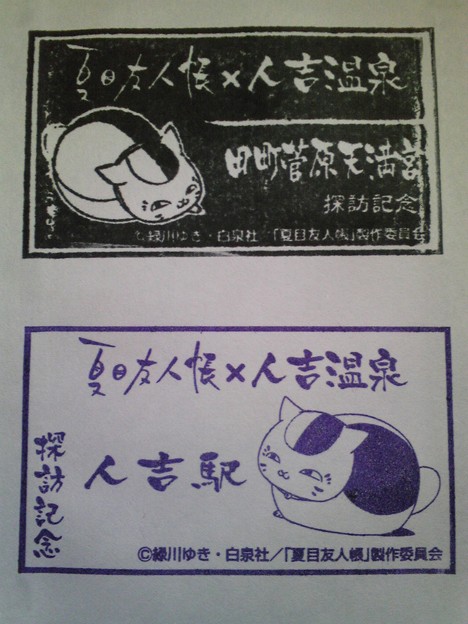 夏目友人帳×人吉温泉
田町菅原天満宮
探訪記念
©緑川ゆき・白泉社/「夏目友人帳」製作委員会
夏目友人帳×人吉温泉
人吉駅
探訪記念
©緑川ゆき・白泉社/「夏目友人帳」製作委員会